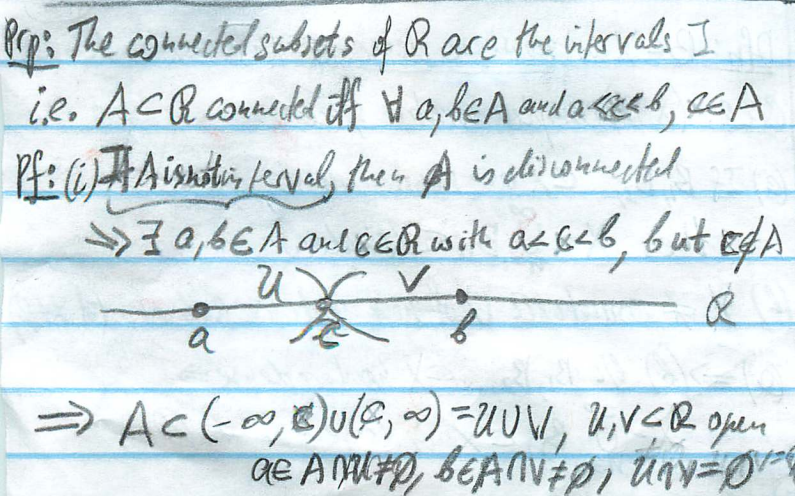 Prp: The connected subsets of R are the intervals I
i.e. A⊂R connected iff ∀ a,b∈A and a<c<b, c∈A
Pf: (i) If A is not interval, then A is disconnected
⇒ ∃ a,b∈A and c∈R with a<c<b, but c∉A
U V
R
a c b
⇒ A⊂(-∞,c)∪(c,∞)=U∪V, U,V⊂R open
a∈A∩U≠∅, b∈A∩V≠∅, U∩V=∅